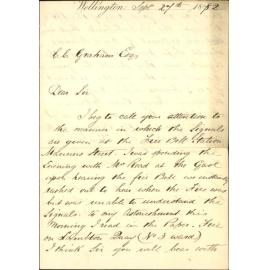 Wellington Sept 27th 1882
C C Graham Esq
Dear Sir
I beg to call your attention to
the manner in which the Signals
are given at the Fire Bell Station
Manners Street. I was spending the
Evening with Mr Head at the Gaol
upon hearing the fire Bell we
rushed out to hear where the Fire was
but was unable to understand the
Signals. to my astonishment this
Morning I read in the Paper. Fire
on Lambton Quay (No 3 ward)
I think Sir you will bear with